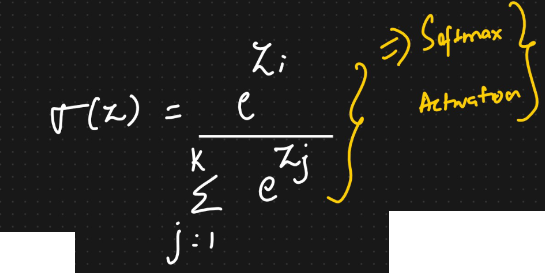 σ(z) = e^{z_i} / \sum_{j=1}^{K} e^{z_j}
⇒ Softmax
Activation